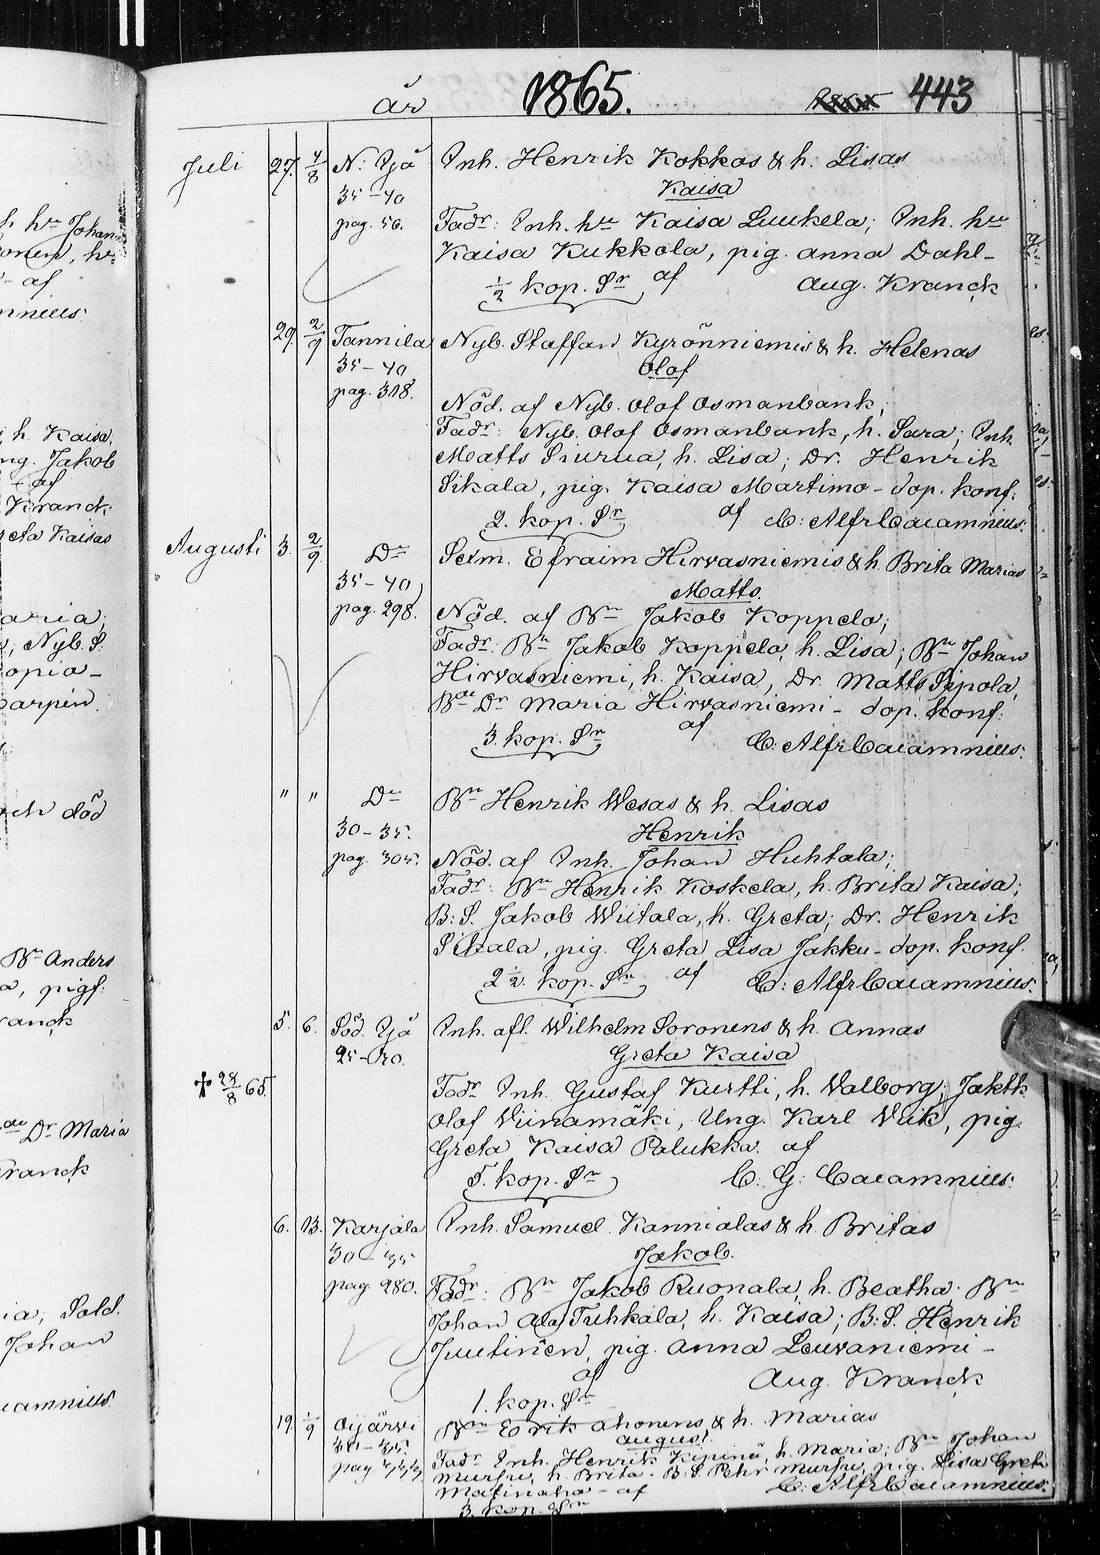 år 1865. 443
Juli 27. 4/8 N: Ijå Inh. Henrik Kokkos & h. Lisas
35-40 Kaisa
pag. 56. Fadr: Inh. hu Kaisa Luukela; Inh. hu
Kaisa Kukkola, pig. Anna Dahl-
1/2 kop. Sr af Aug. Kranck
29. 2/9 Tannila Nyb. Staffan Kyrönniemis & h. Helenas
35-40 Olof
pag. 318. Nöd. af Nyb. Olof Osmanbank;
Fadr: Nyb. Olof Osmanbank, h. Sara; Inh.
Matts Siurua, h. Lisa; Dr. Henrik
Sikala, pig. Kaisa Martimo - dop. konf.
2. kop. Sr af C: Alfr Cajamnius.
Augusti 3. 2/9 Do Sexm. Efraim Hirvasniemis & h. Brita Marias
35-40 Matts.
pag. 298. Nöd. af Bn Jakob Koppelo;
Fadr: Bn Jakob Koppelo, h. Lisa; Bn Johan
Hirvasniemi, h. Kaisa, Dr. Matts Sipola,
Bde Dr Maria Hirvasniemi - dop. konf.
3. kop. Sr af C: Alfr Cajamnius.
" " Do Bn Henrik Wesas & h. Lisas
30-35. Henrik
pag. 305. Nöd. af Inh. Johan Huhtala;
Fadr: Bn Henrik Koskela, h. Brita Kaisa;
B: S. Jakob Wiitala, h. Greta; Dr. Henrik
Sikala, pig. Greta Lisa Jakku - dop. konf.
2 1/2. kop. Sr af C: Alfr Cajamnius.
5. 6. Söd. Ijå Inh. afl. Wilhelm Soronens & h. Annas
25-30. Greta Kaisa
✝ 28/8 65. Fadr Inh. Gustaf Kurtti, h. Walborg; Jaktk
Olof Viinamäki, Ung. Karl Wäik, pig.
Greta Kaisa Palukka. af
5. kop. Sr C: G: Cajamnius.
6. 13. Karjala Inh. Samuel Kannialas & h. Britas
30-35 Jakob.
pag. 280. Fadr: Bn Jakob Ruonala, h. Beatha. Bn
Johan Ala Tuhkala, h. Kaisa; B: S. Henrik
Juutinen, pig. Anna Leuvaniemi -
af Aug. Kranck
1. kop. Sr
19. 1/9 Oijärvi Bn Erik Ahonens & h. Marias
August.
Fadr Inh. Henrik Kipinä, h. Maria; Bn Johan
Mursu, h. Brita. B: S Pehr Mursu, pig. Lisa Greta
Matinaho - af C: Alfr Cajamnius.
3 kop. Sr
h. hu Johan
af
h. Kaisa,
Jakob
af
Kranck
Kaisas
aria;
Nyb. S:
opia-
död
Bn Anders
pigf:
Dr Maria
Kranck
Sold.
Johan